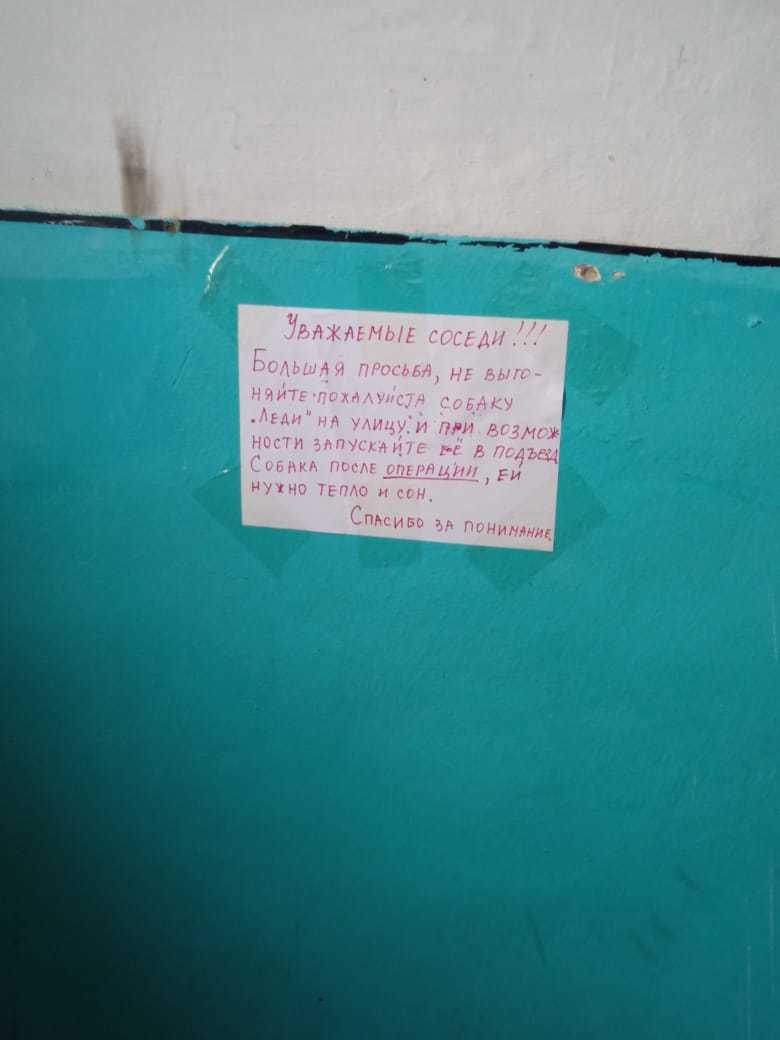 Уважаемые соседи!!!
Большая просьба, не выго-
няйте пожалуйста собаку
„Леди" на улицу и при возмож
ности запускайте её в подъезд
Собака после операции, ей
нужно тепло и сон.
Спасибо за понимание.